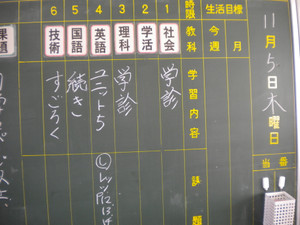 11月5日木曜日
当番
生活目標
今週
今月
時限
教科
学習内容
課題
1 社会 学診
2 学活
3 理科 学診
4 英語 ユニット5
5 国語 続き
6 技術 すごろく
課題